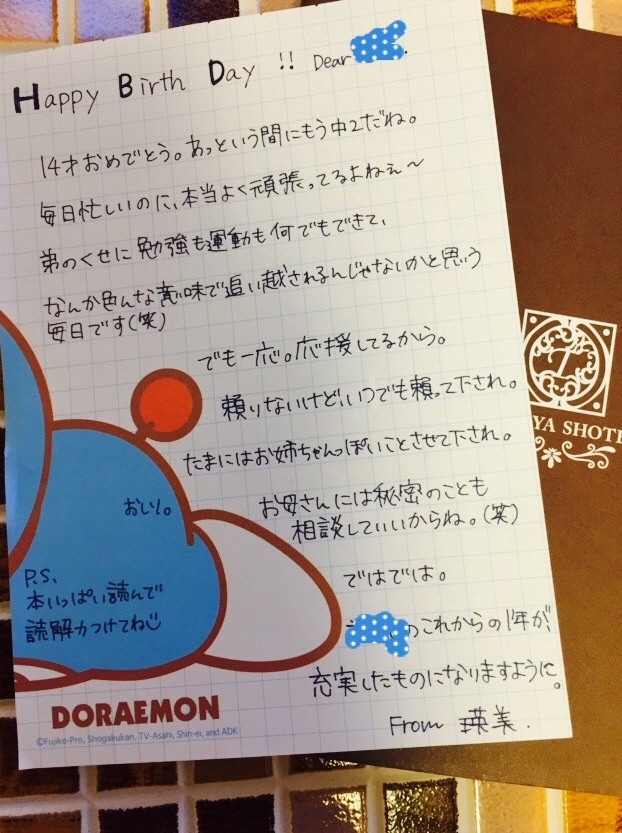 Happy Birth Day !! Dear
14才おめでとう。あっという間にもう中2だね。
毎日忙しいのに、本当よく頑張ってるよねぇ〜
弟のくせに勉強も運動も何でもできて、
なんか色んな意味で追い越されるんじゃないかと思う
毎日です(笑)
でも一応。応援してるから。
頼りないけど、いつでも頼って下され。
たまにはお姉ちゃんっぽいことさせて下され。
お母さんには秘密のことも
相談していいからね。(笑)
おい！。
ではでは。
のこれからの1年が、
充実したものになりますように。
From 瑛美.
P.S、
本いっぱい読んで
読解力つけてね
DORAEMON
©Fujiko-Pro, Shogakukan, TV-Asahi, Shin-ei, and ADK
YA SHOTE